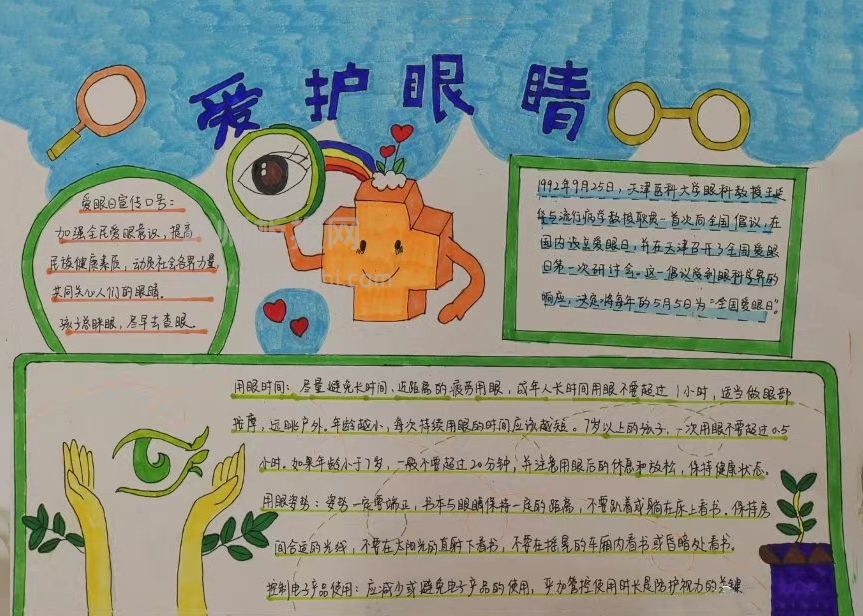 爱护眼睛
爱眼日宣传口号：
加强全民爱眼意识，提高
民族健康素质，动员社会各界力量，
共同关心人们的眼睛。
孩子总眯眼，尽早去查眼。
1992年9月25日，天津医科大学眼科教授王延
华与流行病学教授耿贯一首次向全国倡议，在
国内设立爱眼日，并在天津召开了全国爱眼
日第一次研讨会。这一倡议受到眼科学界的
响应，决定将每年的5月5日为“全国爱眼日”。
用眼时间：尽量避免长时间、近距离的疲劳用眼，成年人长时间用眼不要超过1小时，适当做眼部
按摩，远眺户外。年龄越小，每次持续用眼的时间应该越短。7岁以上的孩子，一次用眼不要超过0.5
小时。如果年龄小于7岁，一般不要超过20分钟，并注意用眼后的休息和放松，保持健康状态。
用眼姿势：姿势一定要端正，书本与眼睛保持一定的距离，不要趴着或躺在床上看书。保持房
间合适的光线，不要在太阳光的直射下看书，不要在摇晃的车厢内看书或昏暗处看书。
控制电子产品使用：应减少或避免电子产品的使用，更加管控使用时长是防护视力的关键